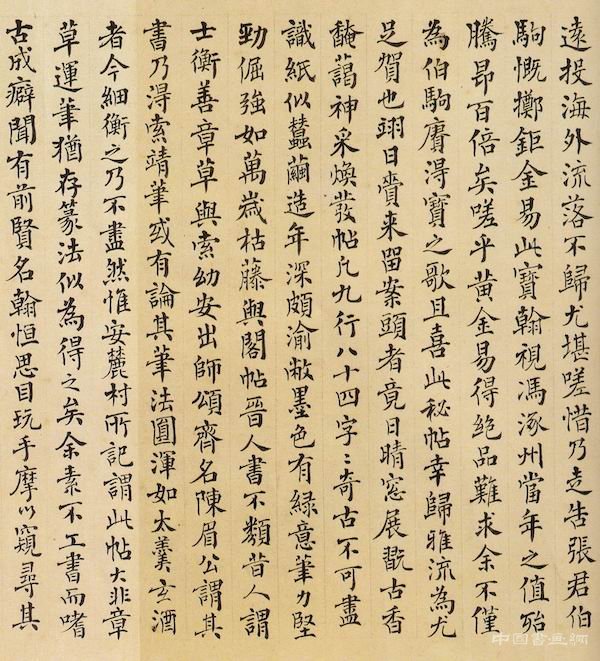 遠投海外流落不歸尤堪嗟惜乃走告張君伯
駒慨擲鉅金易此寶翰視馮涿州當年之值殆
騰昻百倍矣嗟乎黃金易得絕品難求余不僅
為伯駒賡得寶之歌且喜此秘帖幸歸雅流為尤
足賀也翊日賫来留案頭者竟日晴窓展翫古香
馣藹神采煥發帖凡九行八十四字〻奇古不可盡
識紙似蠶繭造年深頗渝敝墨色有綠意筆力堅
勁倔強如萬歲枯藤與閣帖晉人書不類昔人謂
士衡善章草與索幼安出師頌齊名陳眉公謂其
書乃得索靖筆或有論其筆法圓渾如太羹玄酒
者今細衡之乃不盡然惟安麓村所記謂此帖大非章
草運筆猶存篆法似為得之矣余素不工書而嗜
古成癖聞有前賢名翰恒思目玩手摩以窺尋其
中国書画網